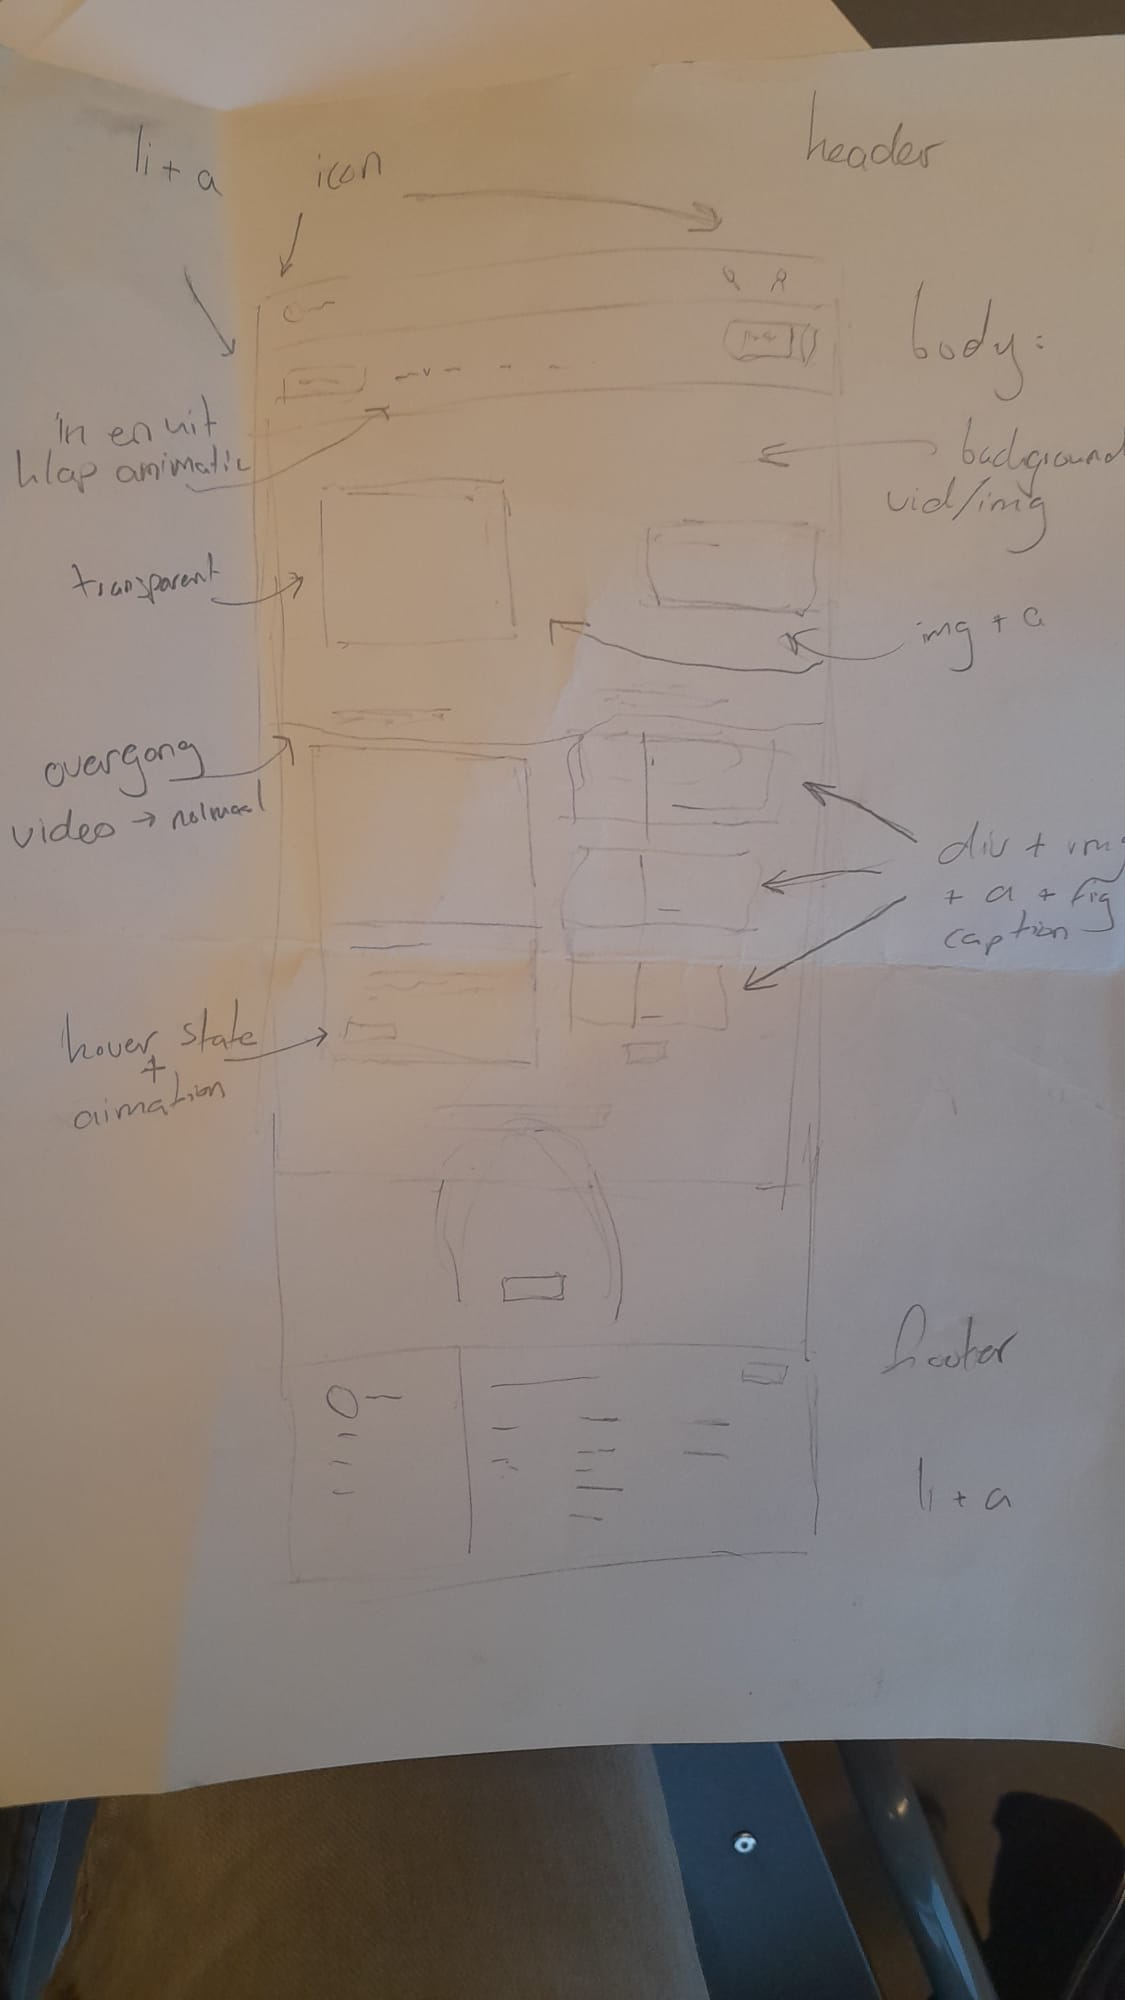 li + a
icon
header
body:
in en uit
klap animatie
background
vid/img
transparent
img + a
overgang
video → normaal
div + img
+ a + fig
caption
hover state
+
aimation
footer
li + a